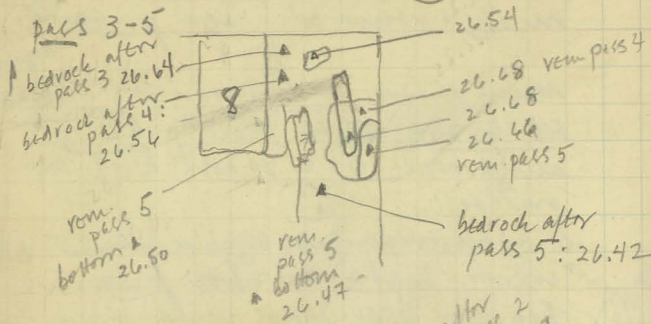 pass 3-5
bedrock after
pass 3 26.64
bedrock after
pass 4:
26.56
8
26.54
26.68 rem pass 4
26.68
26.46
rem. pass 5
bedrock after
pass 5: 26.42
rem.
pass 5
bottom
26.50
rem.
pass 5
bottom
26.47
2